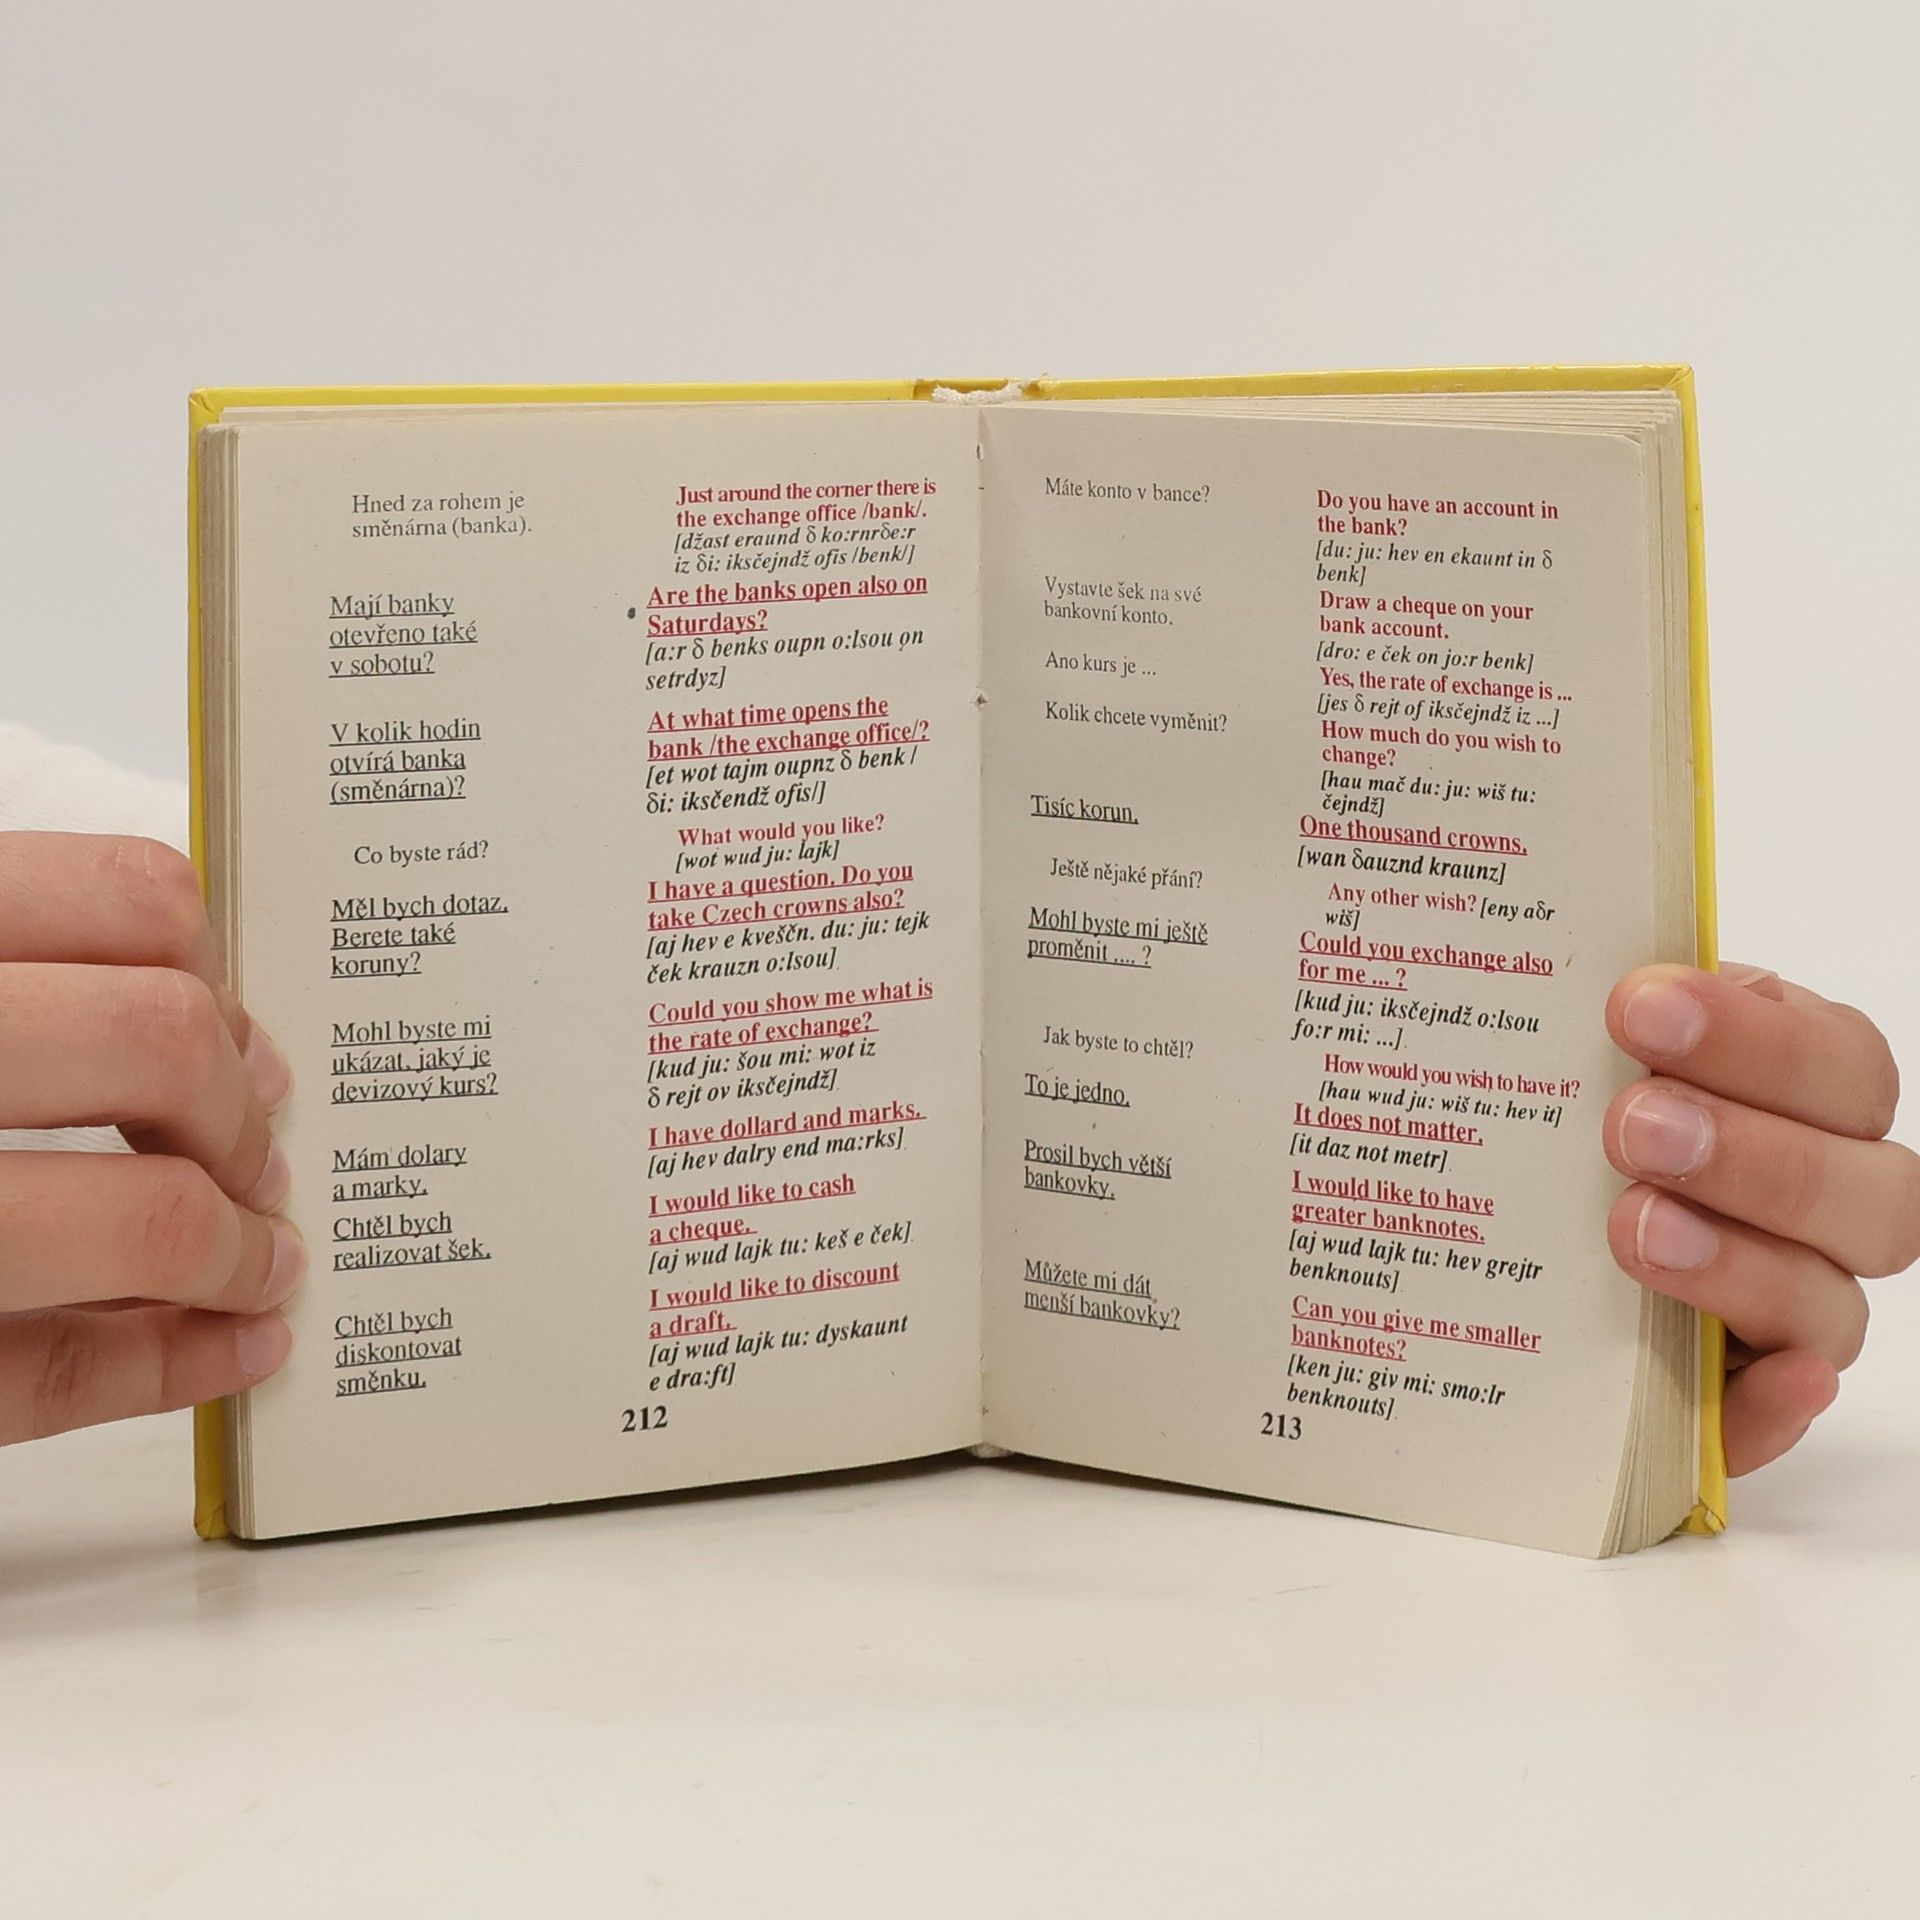 Hned za rohem je
směnárna (banka).
Just around the corner there is
the exchange office /bank/.
[džast eraund δ ko:rnrδe:r
iz δi: iksčejndž ofis /benk/]
Mají banky
otevřeno také
v sobotu?
Are the banks open also on
Saturdays?
[a:r δ benks oupn o:lsou on
setrdyz]
V kolik hodin
otvírá banka
(směnárna)?
At what time opens the
bank /the exchange office/?
[et wot tajm oupnz δ benk /
δi: iksčendž ofis/]
Co byste rád?
What would you like?
[wot wud ju: lajk]
Měl bych dotaz.
Berete také
koruny?
I have a question. Do you
take Czech crowns also?
[aj hev e kveščn. du: ju: tejk
ček krauzn o:lsou]
Mohl byste mi
ukázat, jaký je
devizový kurs?
Could you show me what is
the rate of exchange?
[kud ju: šou mi: wot iz
δ rejt ov iksčejndž]
Mám dolary
a marky.
I have dollard and marks.
[aj hev dalry end ma:rks]
Chtěl bych
realizovat šek.
I would like to cash
a cheque.
[aj wud lajk tu: keš e ček]
Chtěl bych
diskontovat
směnku.
I would like to discount
a draft.
[aj wud lajk tu: dyskaunt
e dra:ft]
212
Máte konto v bance?
Do you have an account in
the bank?
[du: ju: hev en ekaunt in δ
benk]
Vystavte šek na své
bankovní konto.
Draw a cheque on your
bank account.
[dro: e ček on jo:r benk]
Ano kurs je ...
Yes, the rate of exchange is ...
[jes δ rejt of iksčejndž iz ...]
Kolik chcete vyměnit?
How much do you wish to
change?
[hau mač du: ju: wiš tu:
čejndž]
Tisíc korun.
One thousand crowns.
[wan δauznd kraunz]
Ještě nějaké přání?
Any other wish? [eny aδr
wiš]
Mohl byste mi ještě
proměnit .... ?
Could you exchange also
for me ... ?
[kud ju: iksčejndž o:lsou
fo:r mi: ...]
Jak byste to chtěl?
How would you wish to have it?
[hau wud ju: wiš tu: hev it]
To je jedno.
It does not matter.
[it daz not metr]
Prosil bych větší
bankovky.
I would like to have
greater banknotes.
[aj wud lajk tu: hev grejtr
benknouts]
Můžete mi dát
menší bankovky?
Can you give me smaller
banknotes?
[ken ju: giv mi: smo:lr
benknouts]
213